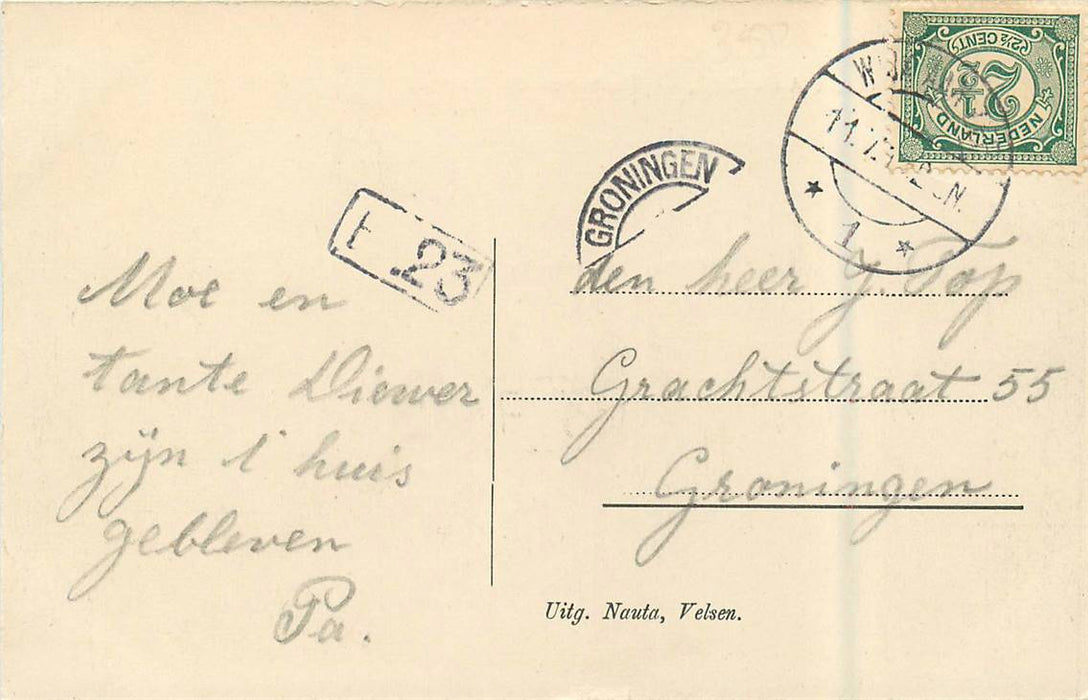 Moe en
tante Diewer
zijn t' huis
gebleven
Pa.
F.23
GRONINGEN
1
NEDERLAND
2½
(2½ CENT)
den heer J. Top
Grachtstraat 55
Groningen
Uitg. Nauta, Velsen.